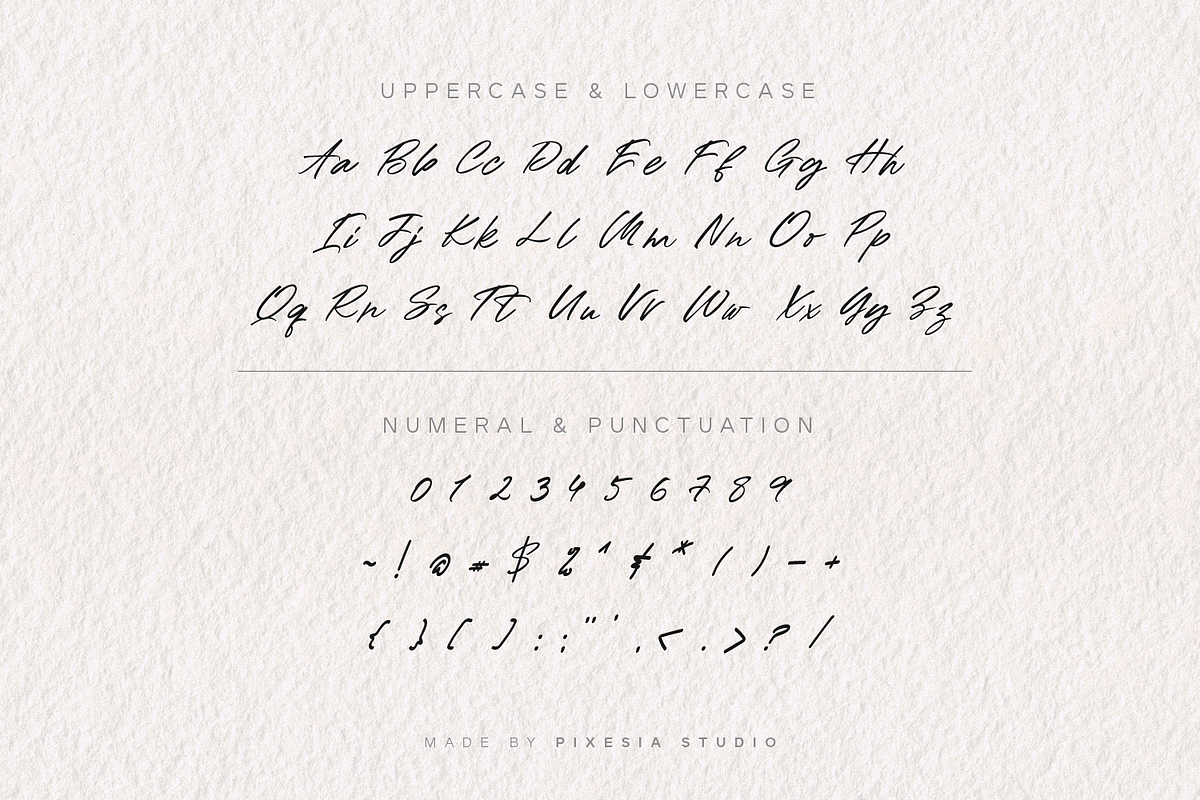 UPPERCASE & LOWERCASE
Aa Bb Cc Dd Ee Ff Gg Hh
Ii Jj Kk Ll Mm Nn Oo Pp
Qq Rr Ss Tt Uu Vv Ww Xx Yy Zz
NUMERAL & PUNCTUATION
0 1 2 3 4 5 6 7 8 9
~ ! @ # $ % ^ & * ( ) - +
{ } [ ] : ; " ' , < . > ? /
MADE BY PIXESIA STUDIO